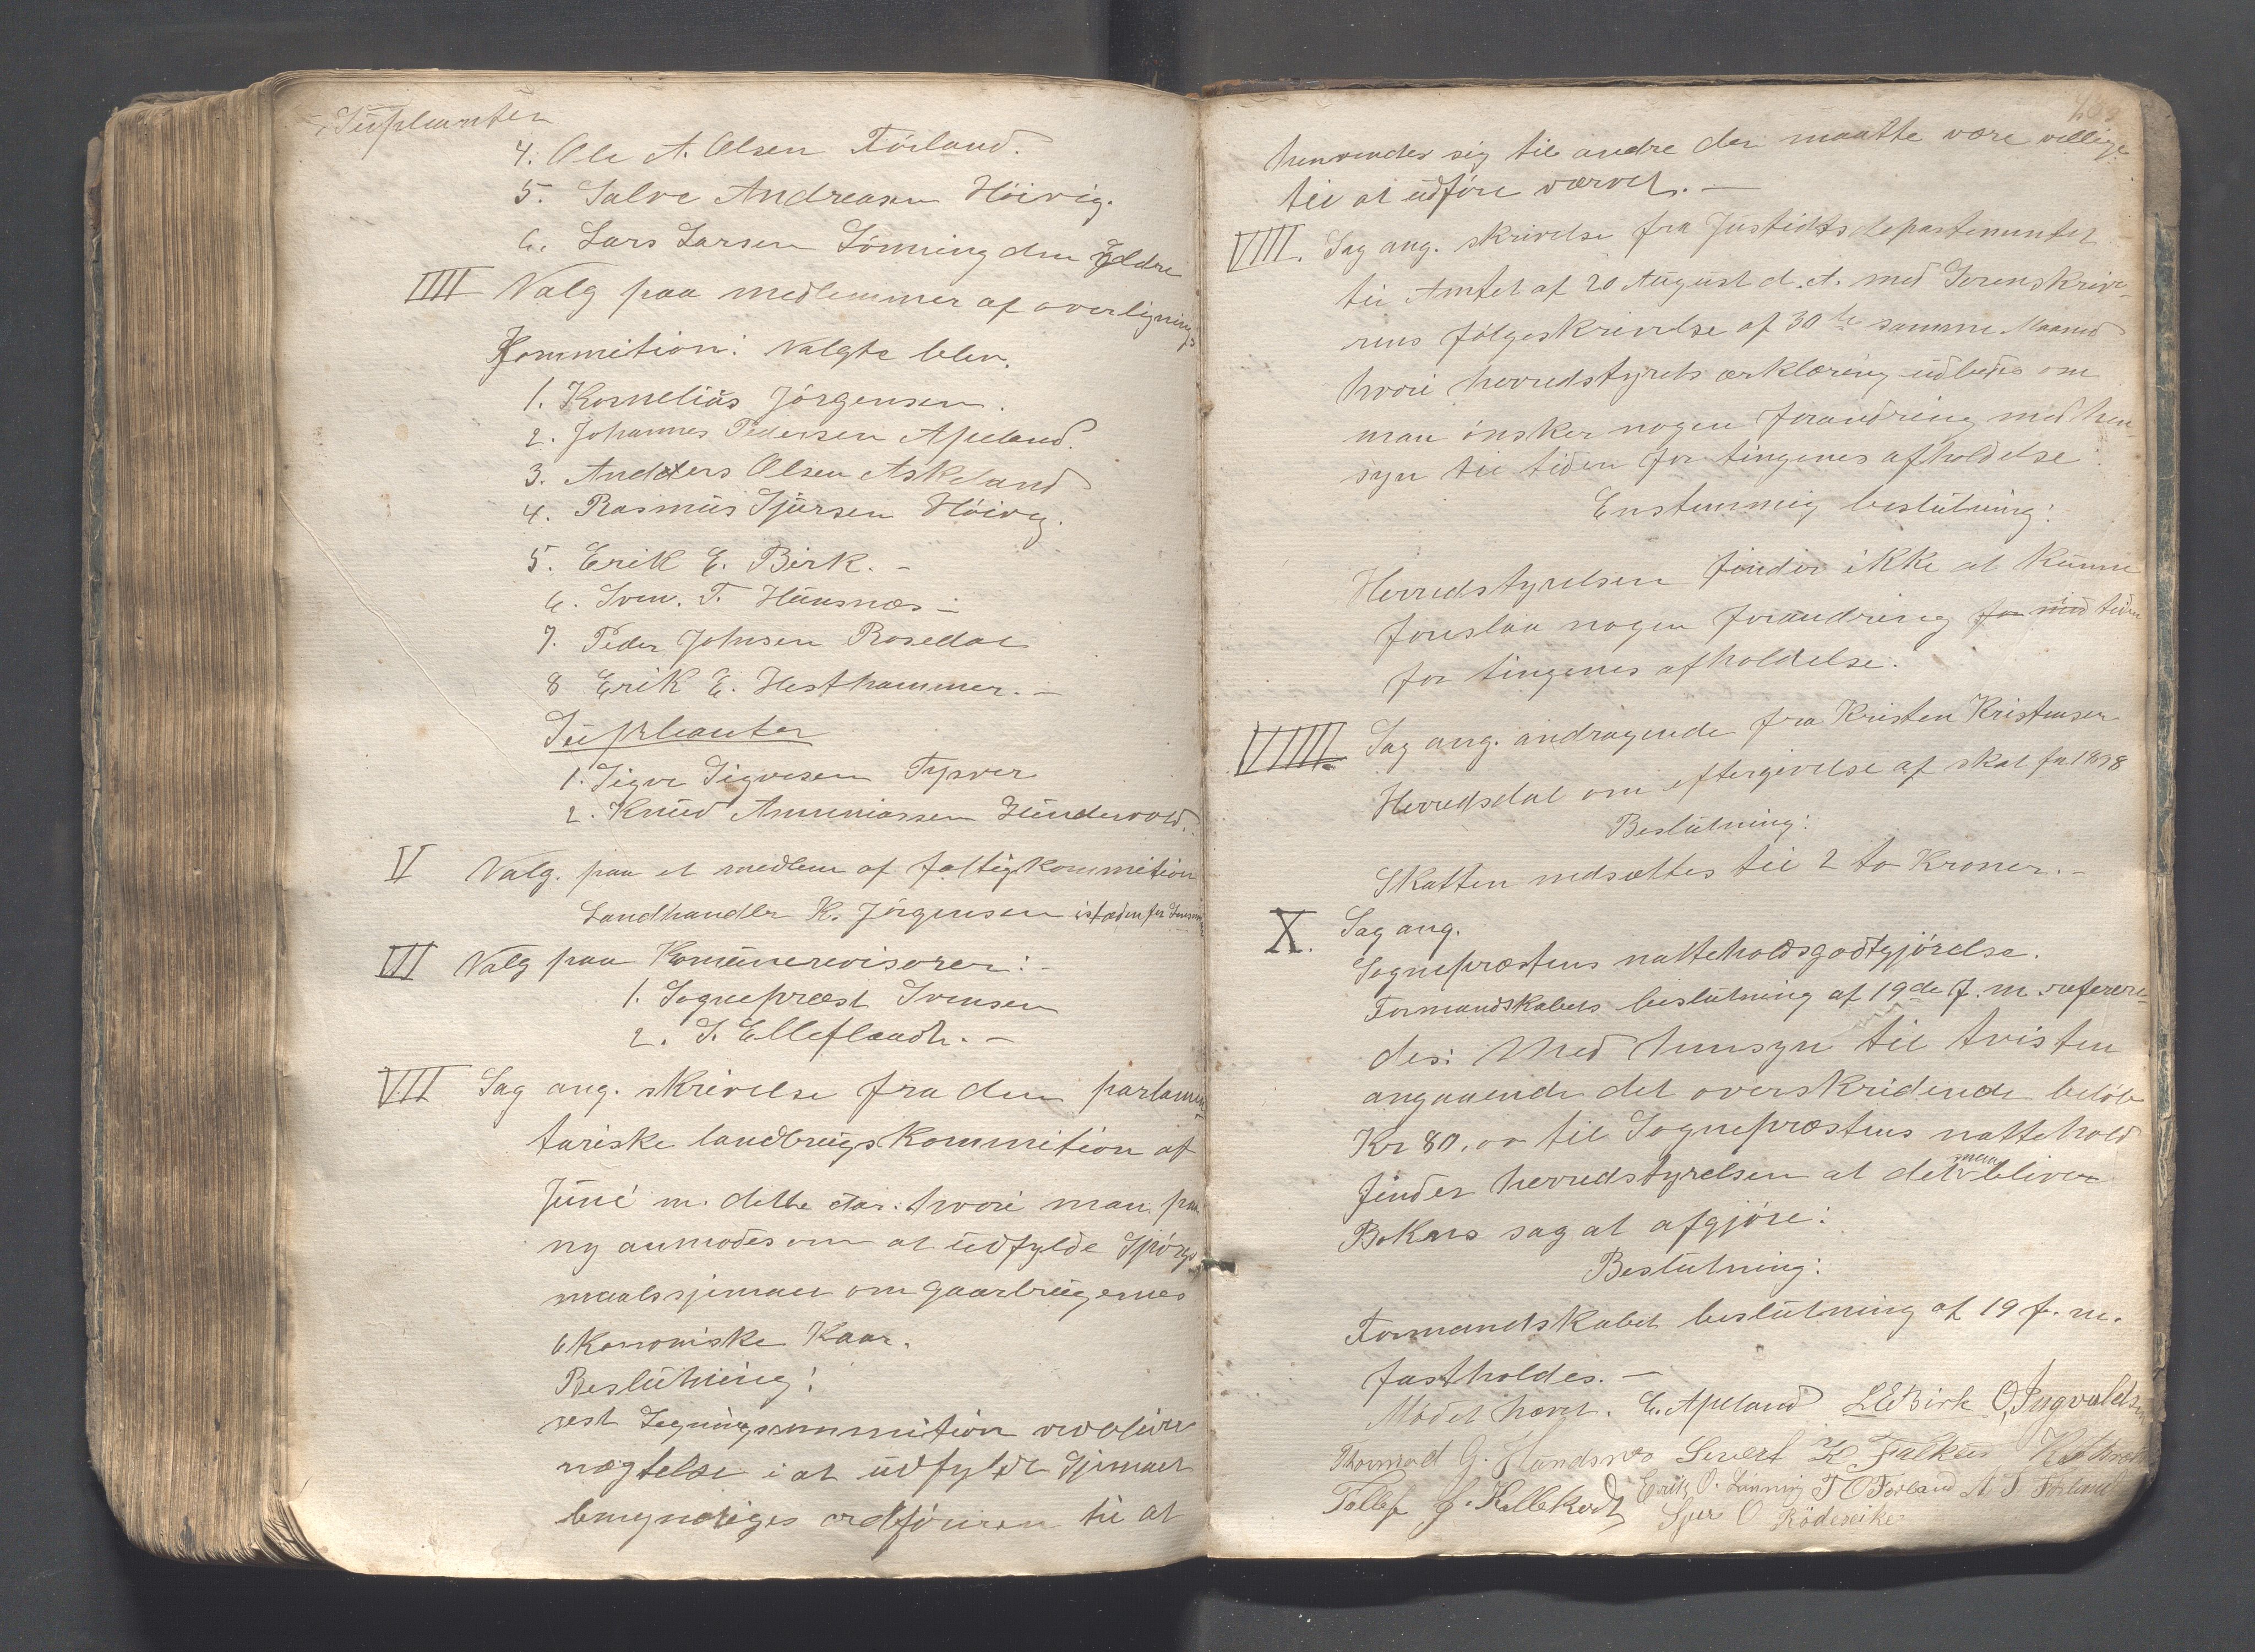 Suplenter
4. Ole A. Olsen Förland.
5. Salve Andreasen Höivig.
6. Lars Larsen Lönning den yldre
IIII Valg paa medlemmer af overlignings
Kommition: Valgte blev.
1. Kornelius Jörgensen.
2. Johannes Pedersen Apeland.
3. Anders Olsen Askeland
4. Rasmus Sjursen Höivig.
5. Erik E. Birk. -
6. Sven. T. Hunsnæs -
7. Peder Johnsen Rosedal
8 Erik E. Hesthammer. -
Supleanter
1. Sigve Sigvesen Tysver
2. Knud Ammiassen Hundevold.
V Valg. paa et medlem af fattigkommition
Landhandler K. Jörgensen istæden for
VI Valg paa Komunerevisorer: -
1. Sogneprest Svensen
2. S. Elleflaadt. -
VII Sag ang. skrivelse fra den parlamen-
tariske landbrugskommition af
Juni m. dette aar. hvori man paa
ny anmodes om at udfylde Spörgs
maalssjemaer om gaarbrugernes
ökonomiske Kaar.
Beslutning:
nægtelse i at udfylde Sjemaet
bemyndiges ordföreren til at
henvender sig til andre der maatte være villige
til at udföre værvet. -
VIII. Sag ang. skrivelse fra Justidtsdepartementet
til Amtet af 20 August d. A. med Sorenskrive-
rens fölgeskrivelse af 30te samme Maaned
hvori herredstyrets ærklæring udbedes om
man önsker nogen forandring med hen-
syn til tiden for tingenes afholdelse:
Enstemmig beslutning:
Herredstyrelsen finder ikke at kunne
foreslaa nogen forandring for med tiden
for tingenes afholdelse.
VIIII. Sag ang. andragende fra Kristen Kristensen
Herredsdal om eftergivelse af skat for 1898
Beslutning:
Skatten nedsættes til 2 to Kroner. -
X. Sag ang.
Sogneprestens natteholdsgodtgjörelse.
Formandskabets beslutning af 19de f. m. refere-
des: Med hensyn til tvisten
angaaende det overskridende belöb
Kr 80,00 til Sogneprestens nattehold
finder herredstyrelsen at det bliver
sag at afgjöre:
Beslutning:
Formandskabet beslutning af 19 f. m.
fastholdes. -
Mödet hævet. E. Apeland L E Birk O. Ingvaldsen
Thormod G. Hundsnes Severt K Falkeid
Tollef J. Kallekodt Erik O. Lönning T O Förland A T Förland
Sjur O Rödseike